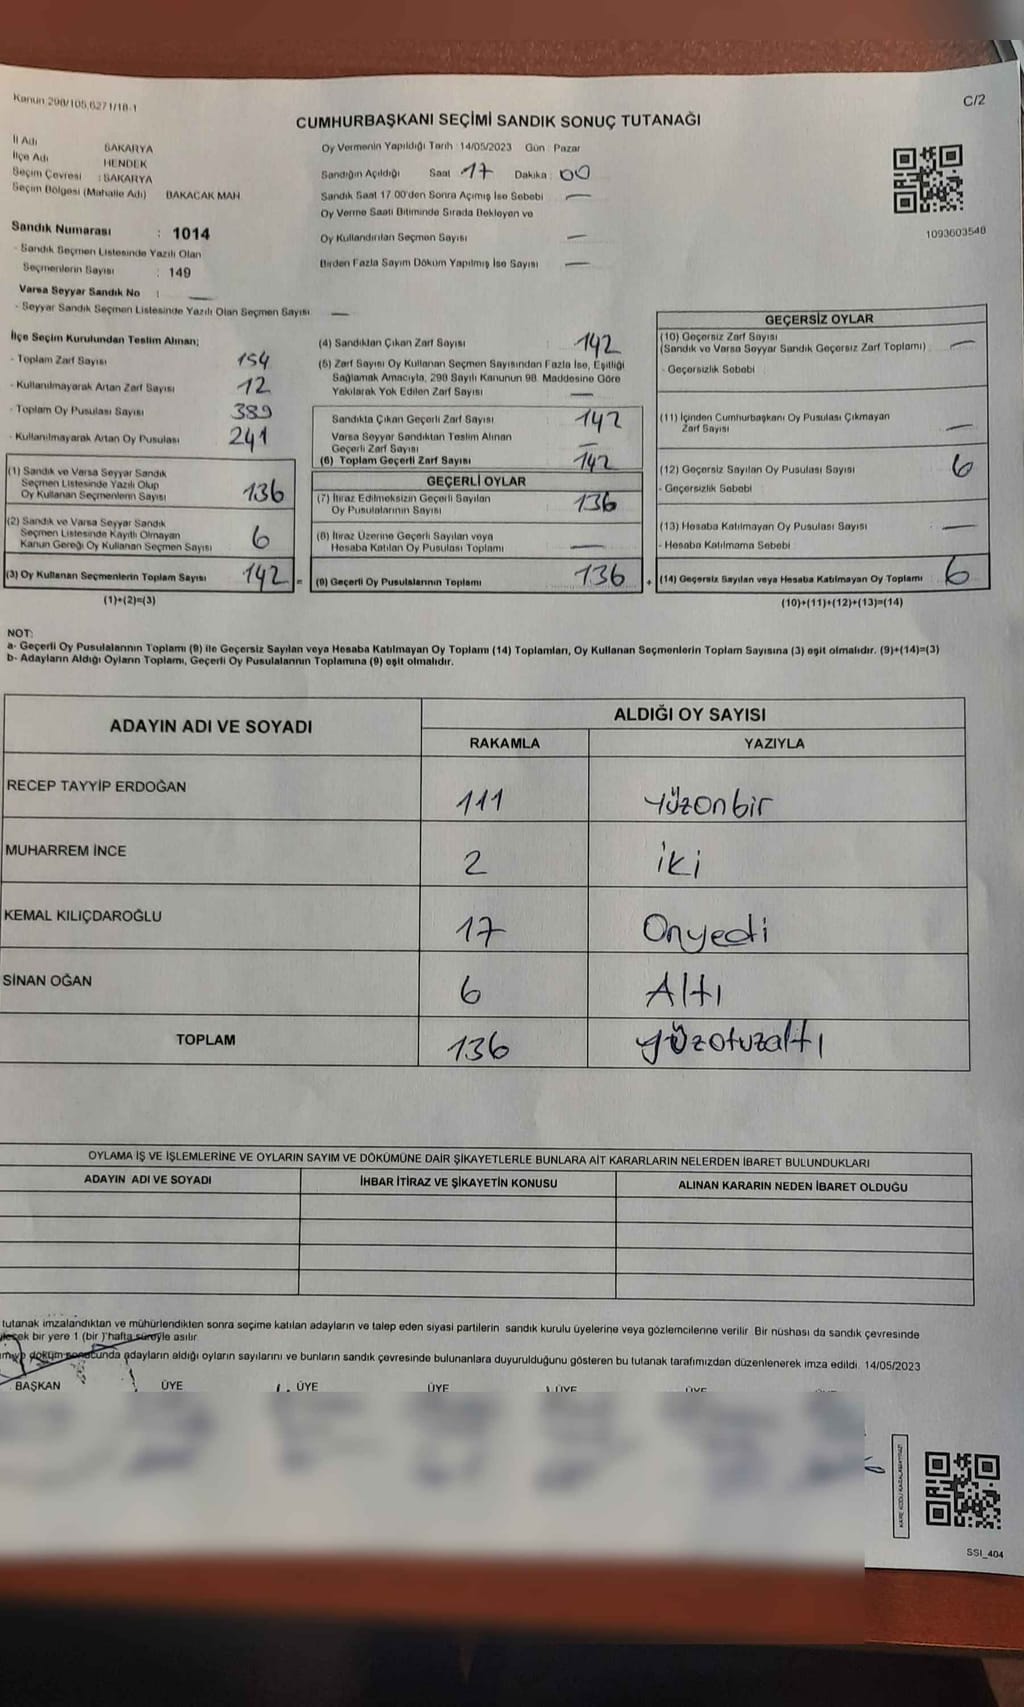 Kanun 298/105,6271/18-1
C/2
CUMHURBAŞKANI SEÇİMİ SANDIK SONUÇ TUTANAĞI
İl Adı : SAKARYA
İlçe Adı : HENDEK
Seçim Çevresi : SAKARYA
Seçim Bölgesi (Mahalle Adı) BAKACAK MAH
Oy Vermenin Yapıldığı Tarih 14/05/2023 Gün Pazar
Sandığın Açıldığı Saat 17 Dakika 00
Sandık Saat 17.00'den Sonra Açımış İse Sebebi —
Oy Verme Saati Bitiminde Sırada Bekleyen ve
Oy Kullandırılan Seçmen Sayısı —
Birden Fazla Sayım Döküm Yapılmış İse Sayısı —
1093603548
Sandık Numarası : 1014
- Sandık Seçmen Listesinde Yazılı Olan
Seçmenlerin Sayısı : 149
Varsa Seyyar Sandık No : —
- Seyyar Sandık Seçmen Listesinde Yazılı Olan Seçmen Sayısı —
İlçe Seçim Kurulundan Teslim Alınan;
- Toplam Zarf Sayısı 154
- Kullanılmayarak Artan Zarf Sayısı 12
- Toplam Oy Pusulası Sayısı 389
- Kullanılmayarak Artan Oy Pusulası 241
(1) Sandık ve Varsa Seyyar Sandık
Seçmen Listesinde Yazılı Olup
Oy Kullanan Seçmenlerin Sayısı 136
(2) Sandık ve Varsa Seyyar Sandık
Seçmen Listesinde Kayıtlı Olmayan
Kanun Gereği Oy Kullanan Seçmen Sayısı 6
(3) Oy Kullanan Seçmenlerin Toplam Sayısı 142 =
(1)+(2)=(3)
(4) Sandıktan Çıkan Zarf Sayısı 142
(5) Zarf Sayısı Oy Kullanan Seçmen Sayısından Fazla İse, Eşitliği
Sağlamak Amacıyla, 298 Sayılı Kanunun 98. Maddesine Göre
Yakılarak Yok Edilen Zarf Sayısı —
Sandıkta Çıkan Geçerli Zarf Sayısı 142
Varsa Seyyar Sandıktan Teslim Alınan
Geçerli Zarf Sayısı —
(6) Toplam Geçerli Zarf Sayısı 142
GEÇERLİ OYLAR
(7) İtiraz Edilmeksizin Geçerli Sayılan
Oy Pusulalarının Sayısı 136
(8) İtiraz Üzerine Geçerli Sayılan veya
Hesaba Katılan Oy Pusulası Toplamı —
(9) Geçerli Oy Pusulalarının Toplamı 136 +
GEÇERSİZ OYLAR
(10) Geçersiz Zarf Sayısı
(Sandık ve Varsa Seyyar Sandık Geçersiz Zarf Toplamı) —
- Geçersizlik Sebebi
(11) İçinden Cumhurbaşkanı Oy Pusulası Çıkmayan
Zarf Sayısı —
(12) Geçersiz Sayılan Oy Pusulası Sayısı 6
- Geçersizlik Sebebi
(13) Hesaba Katılmayan Oy Pusulası Sayısı —
- Hesaba Katılmama Sebebi
(14) Geçersiz Sayılan veya Hesaba Katılmayan Oy Toplamı 6
(10)+(11)+(12)+(13)=(14)
NOT:
a- Geçerli Oy Pusulalarının Toplamı (9) ile Geçersiz Sayılan veya Hesaba Katılmayan Oy Toplamı (14) Toplamları, Oy Kullanan Seçmenlerin Toplam Sayısına (3) eşit olmalıdır. (9)+(14)=(3)
b- Adayların Aldığı Oyların Toplamı, Geçerli Oy Pusulalarının Toplamına (9) eşit olmalıdır.
ADAYIN ADI VE SOYADI
ALDIĞI OY SAYISI
RAKAMLA YAZIYLA
RECEP TAYYİP ERDOĞAN 111 Yüzonbir
MUHARREM İNCE 2 iki
KEMAL KILIÇDAROĞLU 17 Onyedi
SİNAN OĞAN 6 Altı
TOPLAM 136 yüzotuzaltı
OYLAMA İŞ VE İŞLEMLERİNE VE OYLARIN SAYIM VE DÖKÜMÜNE DAİR ŞİKAYETLERLE BUNLARA AİT KARARLARIN NELERDEN İBARET BULUNDUKLARI
ADAYIN ADI VE SOYADI İHBAR İTİRAZ VE ŞİKAYETİN KONUSU ALINAN KARARIN NEDEN İBARET OLDUĞU
tutanak imzalandıktan ve mühürlendikten sonra seçime katılan adayların ve talep eden siyasi partilerin sandık kurulu üyelerine veya gözlemcilerine verilir Bir nüshası da sandık çevresinde
bir yere 1 (bir) hafta süreyle asılır
döküm sonucunda adayların aldığı oyların sayılarını ve bunların sandık çevresinde bulunanlara duyurulduğunu gösteren bu tutanak tarafımızdan düzenlenerek imza edildi. 14/05/2023
BAŞKAN ÜYE ÜYE ÜYE ÜYE ÜYE
SSI_404